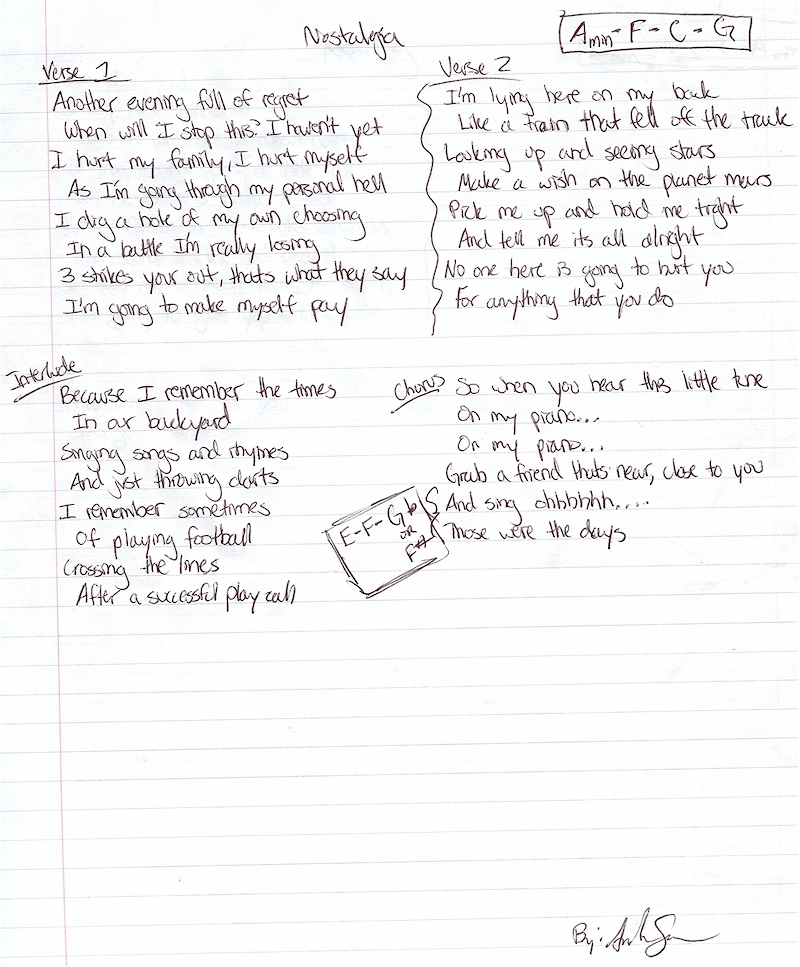 Nostalgia
Amin - F - C - G
Verse 1
Another evening full of regret
When will I stop this? I haven't yet
I hurt my family, I hurt myself
As I'm going through my personal hell
I dig a hole of my own choosing
In a battle I'm really losing
3 strikes your out, thats what they say
I'm going to make myself pay
Verse 2
I'm lying here on my back
Like a train that fell off the track
Looking up and seeing stars
Make a wish on the planet mars
Pick me up and hold me tight
And tell me its all alright
No one here is going to hurt you
For anything that you do
Interlude
Because I remember the times
In our backyard
Singing songs and rhymes
And just throwing darts
I remember sometimes
Of playing football
Crossing the lines
After a successful play call
Chorus
So when you hear this little tune
On my piano...
On my piano...
Grab a friend thats near, close to you
And sing ohhhhhh....
Those were the days
E - F - Gb
OR
F#
By: